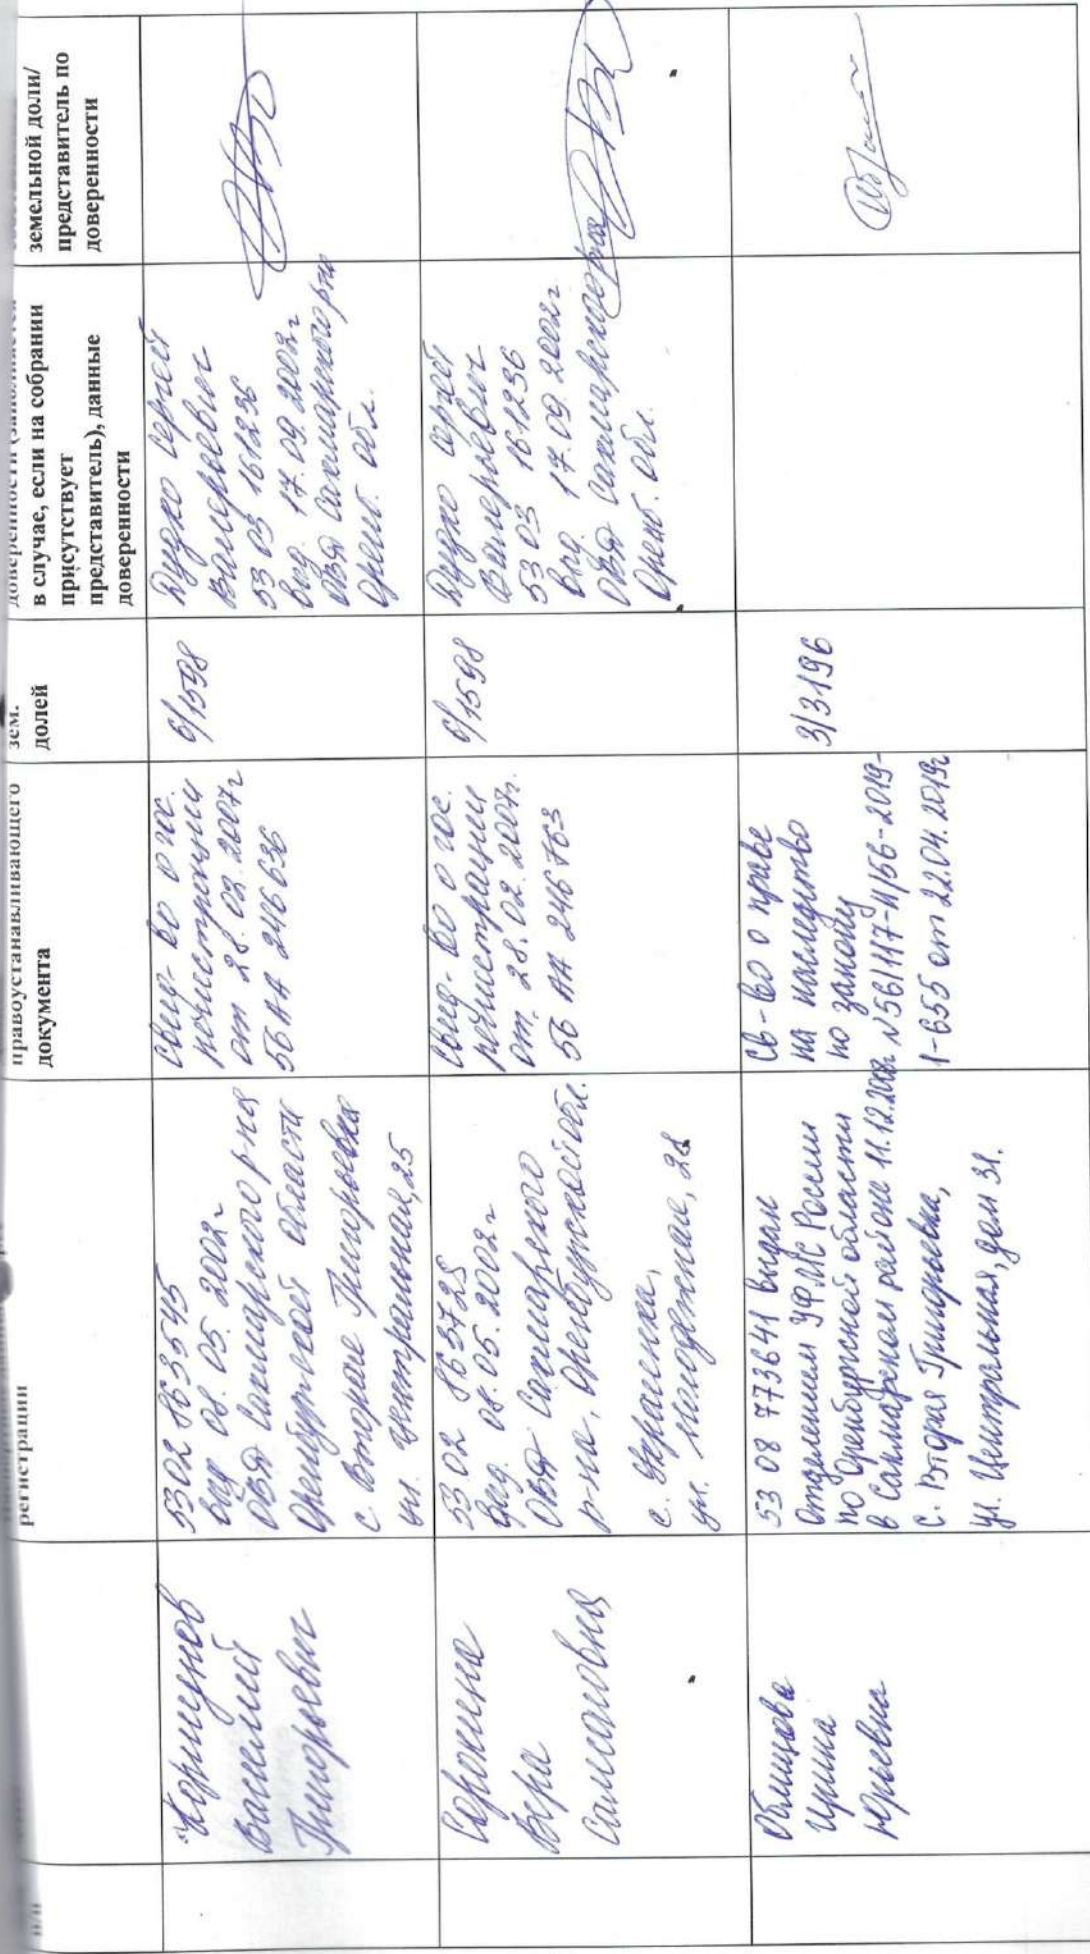 п/п
регистрации
правоустанавливающего
документа
зем.
долей
доверенности (заполняется
в случае, если на собрании
присутствует
представитель), данные
доверенности
земельной доли/
представитель по
доверенности
Коршунов
Василий
Григорьевич
5302 863545
выд 08.05.2002г
ОВД Сакмарского р-на
Оренбургской области
с. Вторая Григорьевка
ул. Центральная, 25
Свид-во о гос.
регистрации
от 28.02.2007г
56АА 246636
6/1598
Дудко Сергей
Валерьевич
53 03 161236
выд. 17.09.2002г
ОВД Сакмарского р-на
Оренб. обл.
Сорокина
Вера
Самсоновна
53 02 863728
выд. 08.05.2002г
ОВД Сакмарского
р-на, Оренбургской обл.
с. Украинка,
ул. Молодежная, 28
Свид-во о гос.
регистрации
от 28.02.2007г.
56 АА 246763
6/1598
Дудко Сергей
Валерьевич
53 03 161236
выд. 17.09.2002г
ОВД Сакмарского р-на
Оренб. обл.
Облицова
Ирина
Юрьевна
53 08 773641 выдан
Отделением УФМС России
по Оренбургской области
в Сакмарском районе 11.12.2008г
с. Вторая Григорьевка,
ул. Центральная, дом 31.
Св-во о праве
на наследство
по закону
№56/117-н/56-2019-
1-655 от 22.04.2019г
3/3196